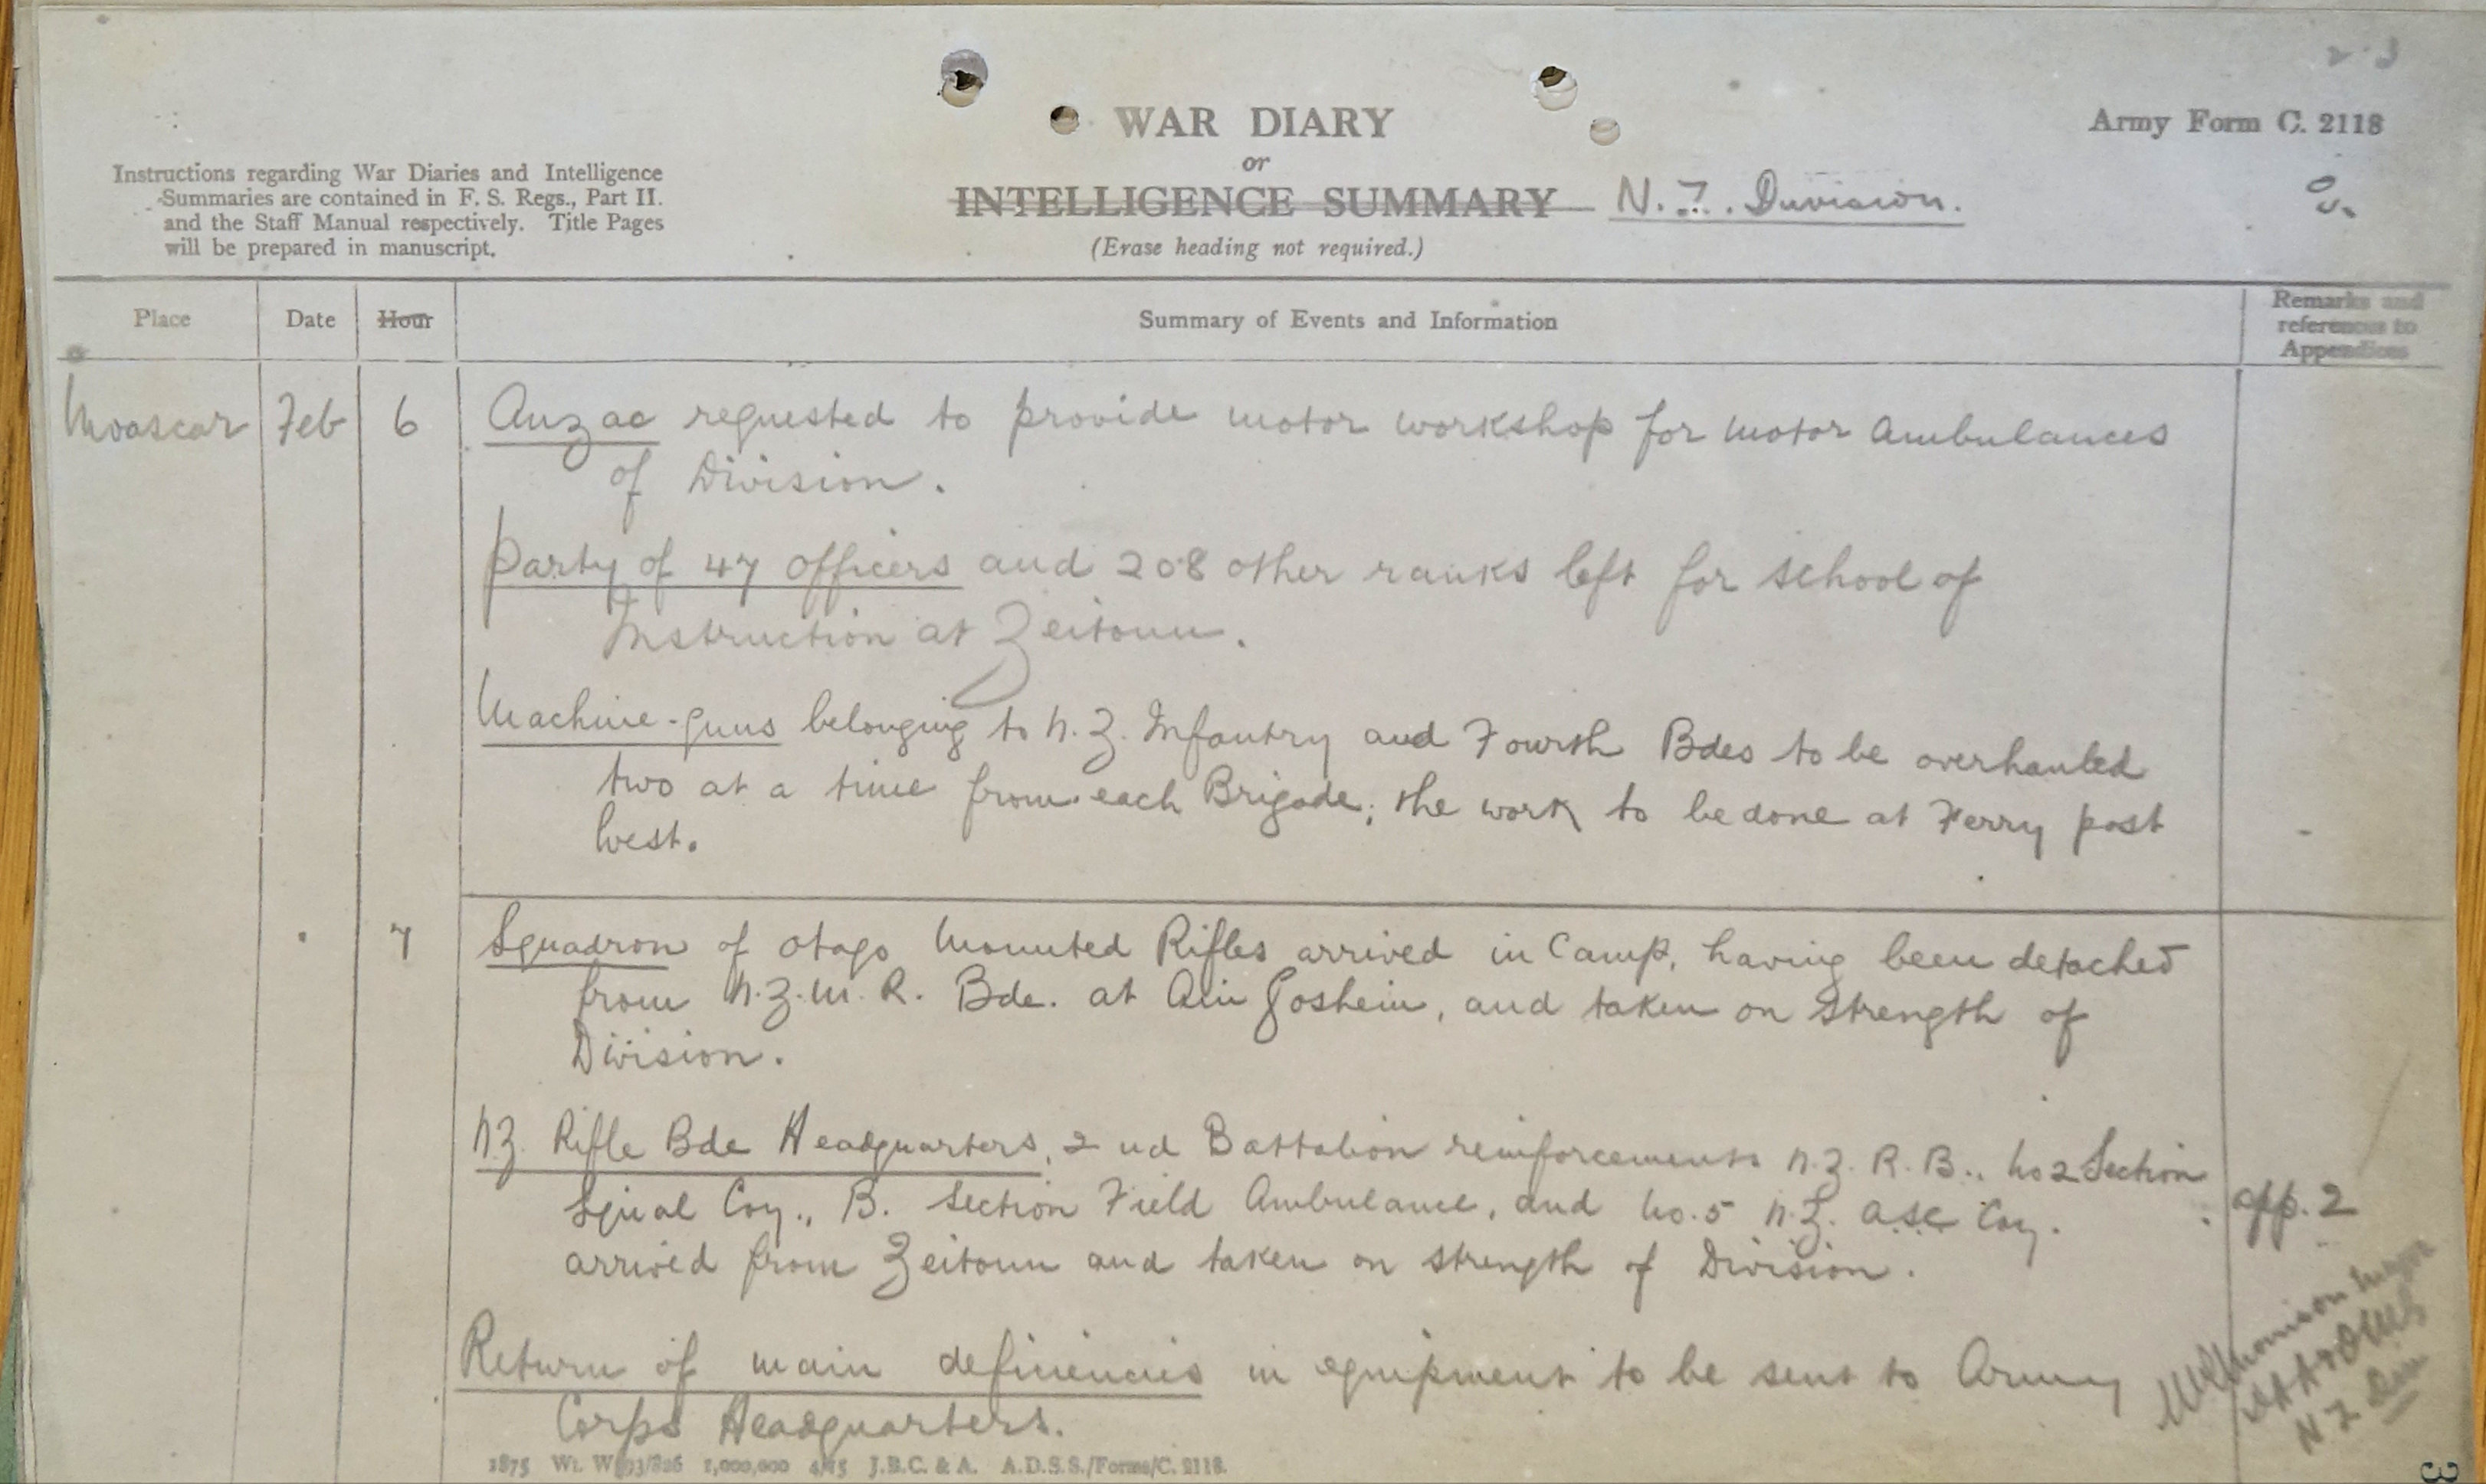 Army Form C. 2118
WAR DIARY
or
INTELLIGENCE SUMMARY
N.Z. Division.
(Erase heading not required.)
Instructions regarding War Diaries and Intelligence
Summaries are contained in F. S. Regs., Part II.
and the Staff Manual respectively. Title Pages
will be prepared in manuscript.
Place Date Hour Summary of Events and Information Remarks and references to Appendices
Moascar Feb 6 Anzac requested to provide motor workshop for motor Ambulances
of Division.
Party of 47 officers and 208 other ranks left for school of
Instruction at Zeitoun.
Machine-guns belonging to N.Z. Infantry and Fourth Bdes to be overhauled
two at a time from each Brigade; the work to be done at Ferry post
West.
7 Squadron of Otago Mounted Rifles arrived in Camp, having been detached
from N.Z.M.R. Bde. at Ain Goshein, and taken on strength of
Division.
N.Z. Rifle Bde Headquarters, 2nd Battalion reinforcements N.Z.R.B., No 2 Section
Signal Coy., B. Section Field Ambulance, and No.5 N.Z. A.S.C Coy. app. 2
arrived from Zeitoun and taken on strength of Division.
Return of main deficiencies in equipment to be sent to Army
Corps Headquarters.
Major
DAA & QMG
N Z Div
1875 Wt. W593/826 1,000,000 4/15 J.B.C. & A. A.D.S.S./Forms/C. 2118.
3